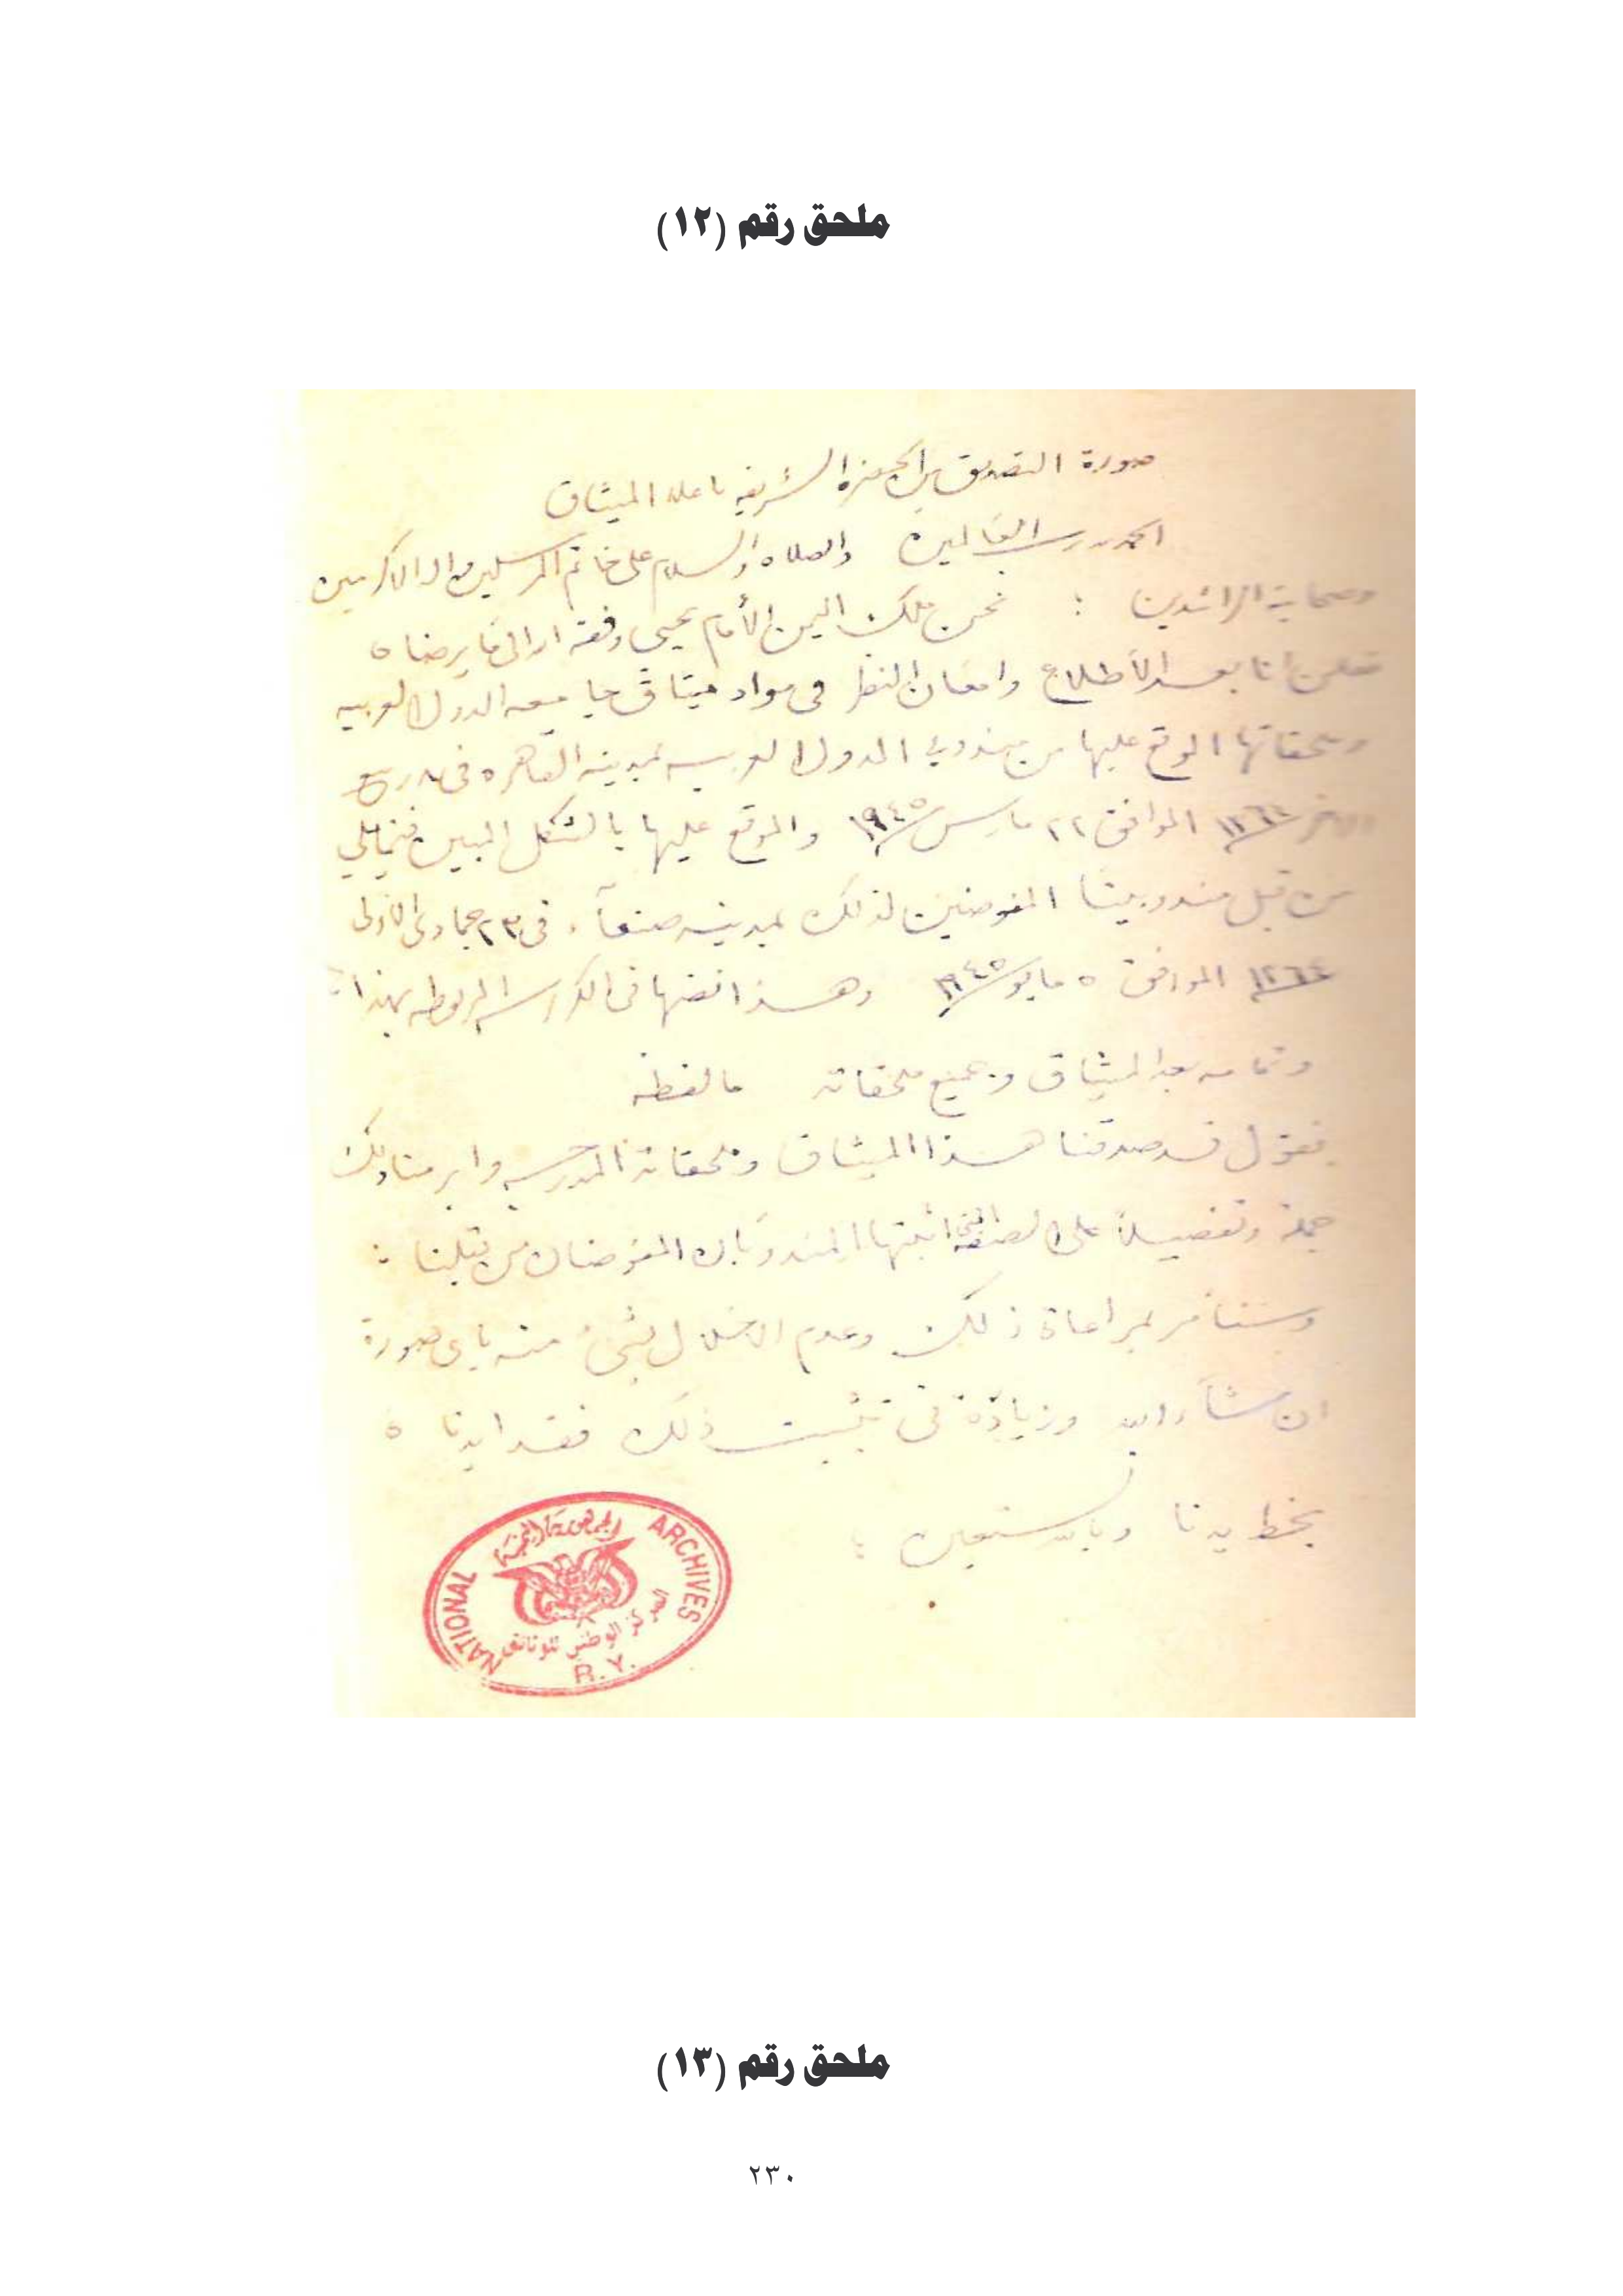 ملحق رقم (١٢)
صورة التصديق من الحضرة الشريفه باعلا الميثاق
الحمد لله رب العالمين والصلاه والسلام على خاتم المرسلين واله الاكرمين
وصحابته الراشدين : نحن ملك اليمن الأمام يحيى وفقه الله الى ما يرضاه
نعلن انا بعد الأطلاع وامعان النظر في مواد ميثاق جامعه الدول العربيه
وملحقاتها الموقع عليها من مندوبي الدول العربيه بمدينه القاهره في ٨ ربيع
الاخر ١٣٦٤ الموافق ٢٢ مارس ١٩٤٥ والموقع عليها بالشكل المبين فيمايلي
من قبل مندوبينا المفوضين لذلك بمدينه صنعآء في ٢٣ جمادى الأولى
١٣٦٤ الموافق ٥ مايو ١٩٤٥ وهذا نصها في الكراسه المربوطه بهذا
وتمامه بعد الميثاق وجميع ملحقاته مالفظه
نقول قد صدقنا هذا الميثاق وملحقاته المدرجه وابرمنا ذلك
جملة وتفصيلاً على الصفة التي اثبتها المندوبان المفوضان من قبلنا :
وسنأمر بمراعاة ذلك وعدم الاخلال بشيء منه باي صورة
ان شآء الله وزيادة في تثبيت ذلك فقد ايدناه
بخط يدنا وبالله نستعين
الجمهورية اليمنية
NATIONAL ARCHIVES
المركز الوطني للوثائق
R.Y.
ملحق رقم (١٣)
٢٣٠